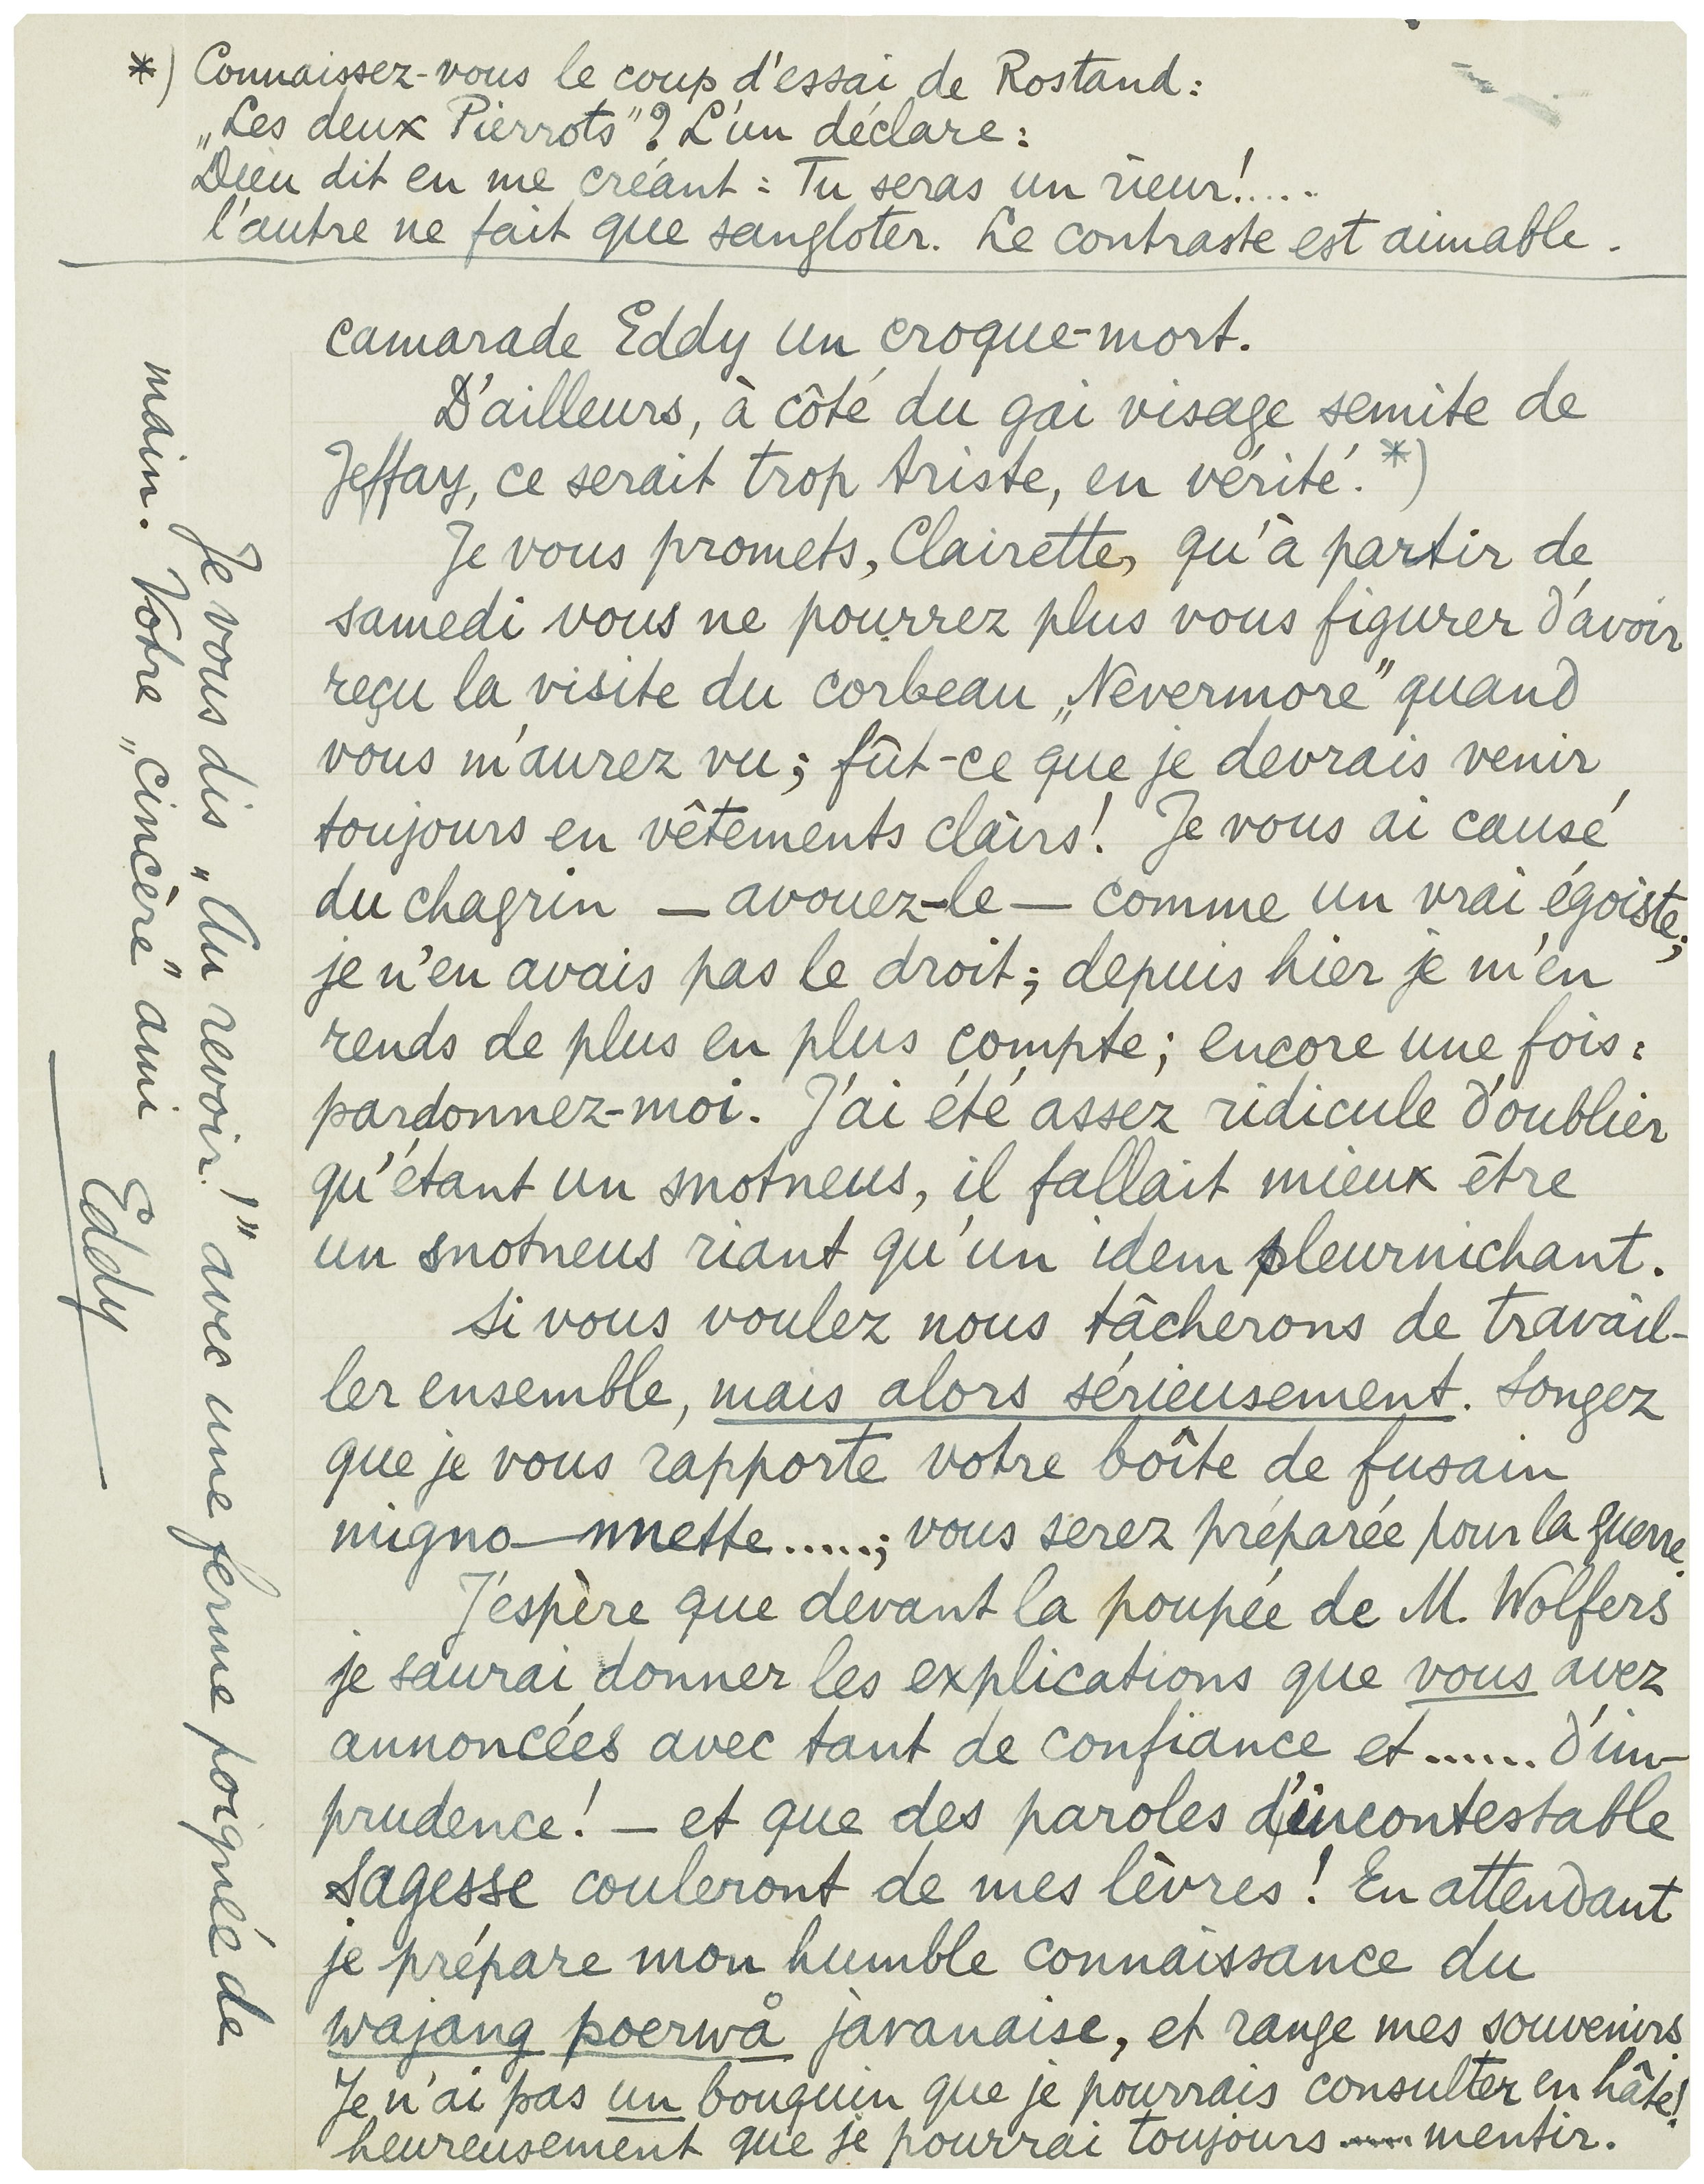 *) Connaissez-vous le coup d'essai de Rostand:
„Les deux Pierrots”? L'un déclare:
Dieu dit en me créant: Tu seras un rieur!....
l'autre ne fait que sangloter. Le contraste est aimable.
camarade Eddy un croque-mort.
D'ailleurs, à côté du gai visage semite de
Jeffay, ce serait trop triste, en vérité.*)
Je vous promets, Clairette, qu'à partir de
samedi vous ne pourrez plus vous figurer d'avoir
reçu la visite du corbeau „Nevermore” quand
vous m'aurez vu; fût-ce que je devrais venir
toujours en vêtements clairs! Je vous ai causé
du chagrin — avouez-le — comme un vrai égoiste;
je n'en avais pas le droit; depuis hier je m'en
rends de plus en plus compte; encore une fois:
pardonnez-moi. J'ai été assez ridicule d'oublier
qu'étant un snotneus, il fallait mieux être
un snotneus riant qu'un idem pleurnichant.
Si vous voulez nous tâcherons de travail-
ler ensemble, mais alors sérieusement. Songez
que je vous rapporte votre boîte de fusain
migno—nnette.....; vous serez préparée pour la guerre.
J'espère que devant la poupée de M. Wolfers
je saurai donner les explications que vous avez
annoncées avec tant de confiance et...... d'im-
prudence! — et que des paroles d'incontestable
sagesse couleront de mes lèvres! En attendant
je prépare mon humble connaissance du
wajang poerwå javanaise, et range mes souvenirs.
Je n'ai pas un bouquin que je pourrais consulter en hâte!
heureusement que je pourrai toujours .... mentir.
Je vous dis „Au revoir!” avec une ferme poignée de
main. Votre „cincère” ami
Eddy